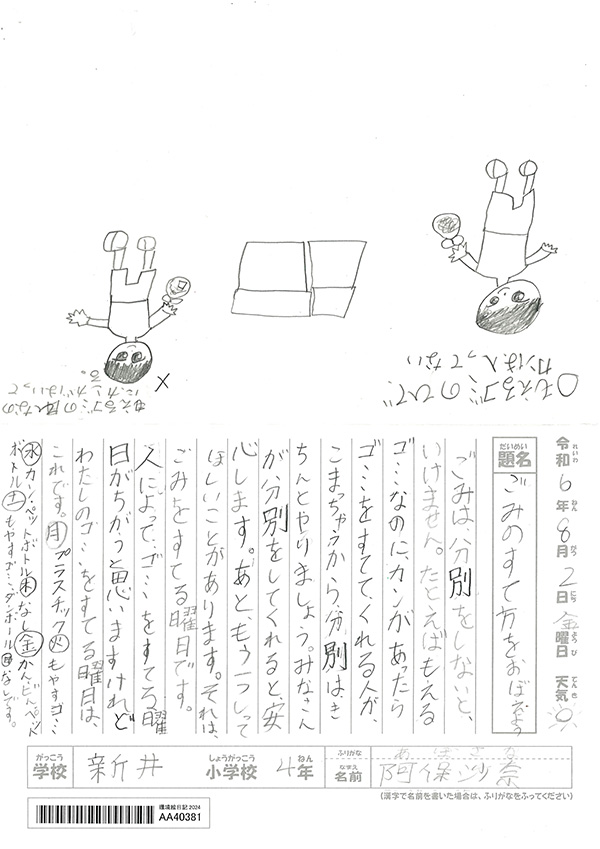 ○もえるゴミのひで
カンは入ってない
×
もえるゴミの日なの
にカンがはいって
る。
令和6年8月2日金曜日 天気
れいわ ねん がつ にち ようび てんき
だいめい
題名
ごみのすて方をおぼえよう
ごみは、分別をしないと、
いけません。たとえばもえる
ゴミなのに、カンがあったら
ゴミをすてて、くれる人が、
こまっちゃうから、分別は、き
ちんとやりましょう。みなさん
が分別をしてくれると、安
心します。あと、もう一つしって
ほしいことがあります。それは、
ごみをすてる曜日です。
人によって、ゴミをすてる曜
日がちがうと思いますけれど
わたしのゴミをすてる曜日は、
これです。月プラスチック火もやすゴミ
水カン・ペットボトル木なし金かん、びん、ペット
ボトル土もやすゴミ、ダンボール日なしです。
がっこう
学校
新井
しょうがっこう
小学校
ねん
4年
ふりがな
あほさな
なまえ
名前
阿保沙奈
(漢字で名前を書いた場合は、ふりがなをふってください)
環境絵日記2024
AA40381